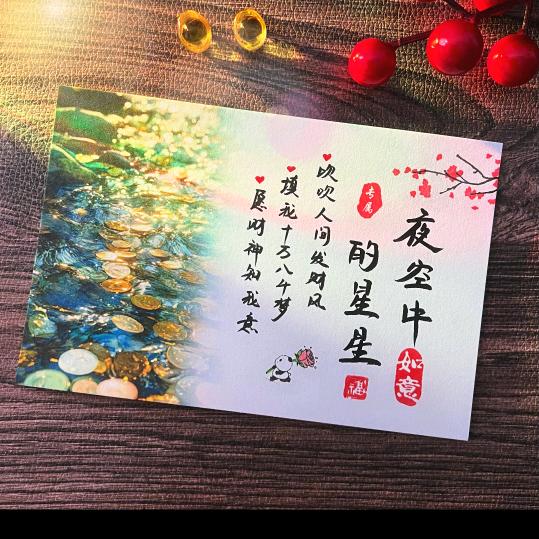 夜空中
如意
的星星
福
专属
吹吹人间发财风
填我十万八千梦
愿财神知我意